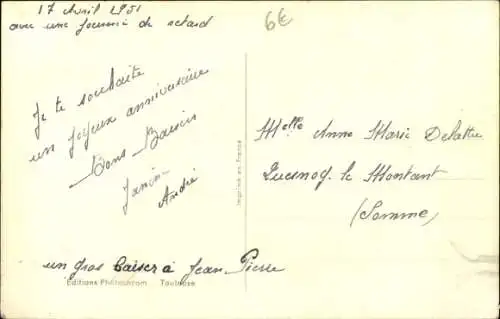 17 Avril 1951
avec une journée de retard
6€
Je te souhaite
un joyeux anniversaire
Bons Baisers
Janin
André
un gros baiser à Jean Pierre
Editions Photochrom Toulouse
Imprimé en France
Melle Anne Marie Delattre
Quesnoy le Montant
(Somme)